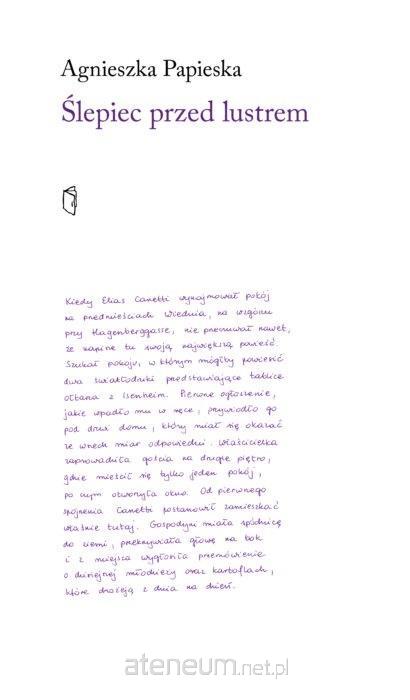 Agnieszka Papieska
Ślepiec przed lustrem
Kiedy Elias Canetti wynajmował pokój
na przedmieściach Wiednia, na wzgórzu
przy Hagenberggasse, nie przeczuwał nawet,
że napisze tu swoją największą powieść.
Szukał pokoju, w którym mógłby powiesić
dwa światłodruki przedstawiające tablice
ołtarza z Isenheim. Pierwsze ogłoszenie,
jakie wpadło mu w ręce, przywiodło go
pod drzwi domu, który miał się okazać
ze wszech miar odpowiedni. Właścicielka
zaprowadziła gościa na drugie piętro,
gdzie mieścił się tylko jeden pokój,
po czym otworzyła okno. Od pierwszego
spojrzenia Canetti postanowił zamieszkać
właśnie tutaj. Gospodyni miała spódnicę
do ziemi, przekrzywiała głowę na bok
i z miejsca wygłosiła przemówienie
o dzisiejszej młodzieży oraz kartoflach,
które drożeją z dnia na dzień.
ateneum.net.pl